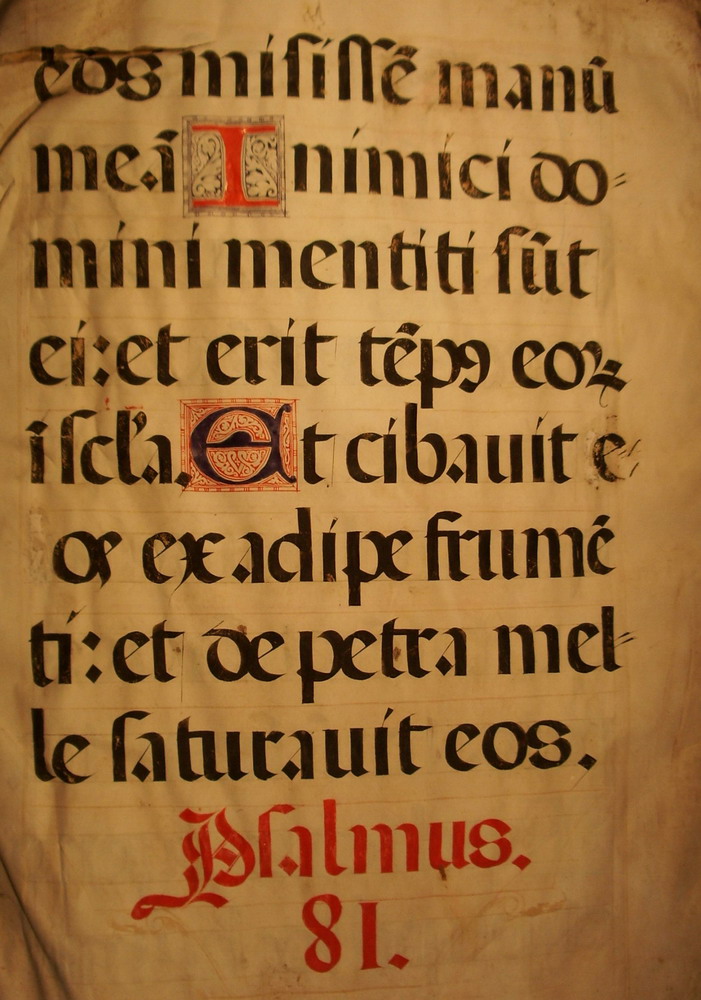 eos misissē manū
meā Inimici do-
mini mentiti sūt
ei: et erit tēpꝯ eoꝝ
i scl'a. Et cibauit e-
os ex adipe frumē
ti: et de petra mel-
le saturauit eos.
Psalmus.
81.